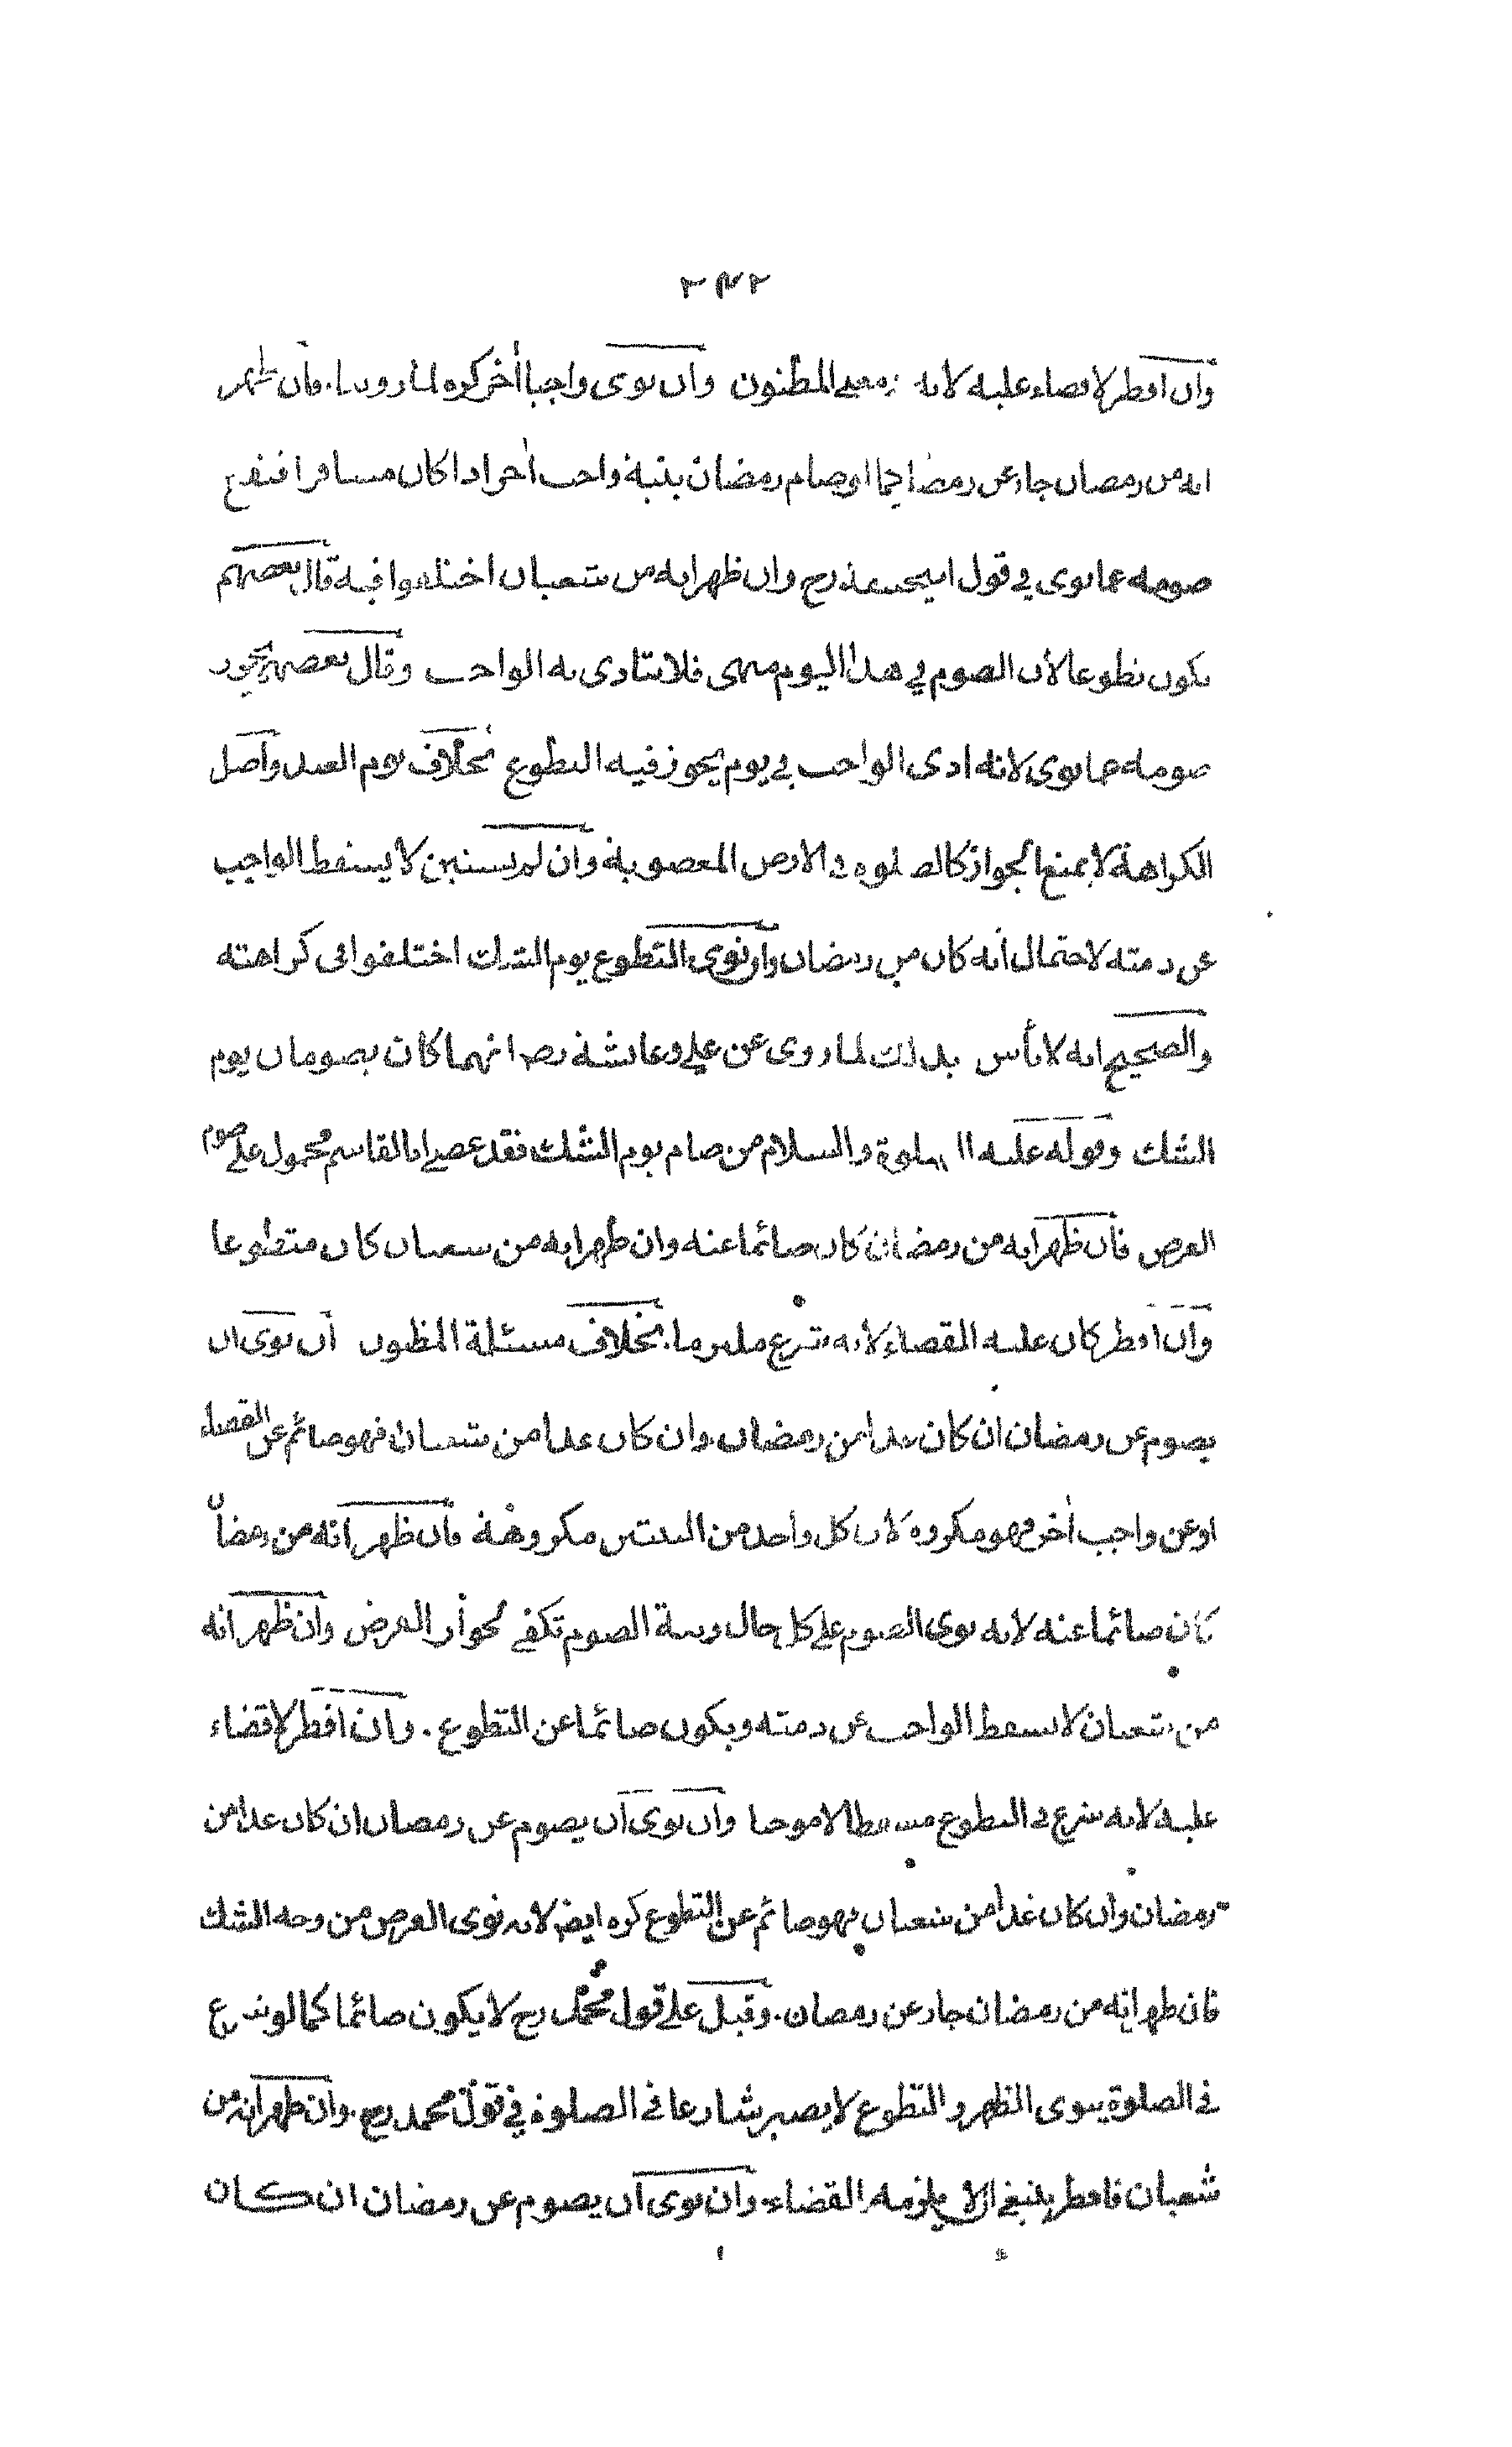 ٢٣٢
وان افطر لا قضاء عليه لانه في معنى المظنون وان نوى واجبا أخر كره لما روينا. فان ظهر
انه من رمضان جاز عن رمضان كما لو صام رمضان بنية واجب أخر اذا كان مسافرا فيقع
صومه عما نوى في قول ابيحنيفة رح وان ظهر انه من شعبان اختلفوا فيه قال بعضهم
يكون تطوعا لان الصوم في هذا اليوم منهى فلا يتادى به الواجب وقال بعضهم يجوز
صومه عما نوى لانه ادى الواجب في يوم يجوز فيه التطوع بخلاف يوم العيد واصل
الكراهة لا يمنع الجواز كالصلوة في الارض المغصوبة وان لم يستبين لا يسقط الواجب
عن ذمته لاحتمال انه كان من رمضان وان نوى التطوع يوم الشك اختلفوا في كراهته
والصحيح انه لا بأس بذلك لما روى عن علي وعائشة رضـ انهما كان يصومان يوم
الشك وقوله عليه الصلوة والسلام من صام يوم الشك فقد عصى ابا القاسم محمول على صوم
الفرض فان ظهر انه من رمضان كان صائما عنه وان ظهر انه من شعبان كان متطوعا
وان افطر كان عليه القضاء لانه شرع ملتزما. بخلاف مسئلة المظنون أن نوى ان
يصوم عن رمضان ان كان غدا من رمضان وان كان غدا من شعبان فهو صائم عن القضاء
او عن واجب أخر فهو مكروه لان كل واحد من النيتين مكروهة فان ظهر انه من رمضان
كان صائما عنه لانه نوى الصوم على كل حال ونية الصوم تكفى لجواز الفرض وان ظهر انه
من شعبان لا يسقط الواجب عن ذمته ويكون صائما عن التطوع. وان افطر لا قضاء
عليه لانه شرع في التطوع مسقطا لا موجبا وان نوى أن يصوم عن رمضان ان كان غدا من
رمضان وان كان غدا من شعبان فهو صائم عن التطوع كره ايضا لانه نوى الفرض من وجه الشك
فان ظهر انه من رمضان جاز عن رمضان. وقيل على قول محمد رح لا يكون صائما كما لو شرع
في الصلوة ينوى الظهر والتطوع لا يصير شارعا في الصلوة في قول محمد رح. وان ظهر انه من
شعبان فافطر ينبغى ان لا يلزمه القضاء وان نوى أن يصوم عن رمضان ان كان